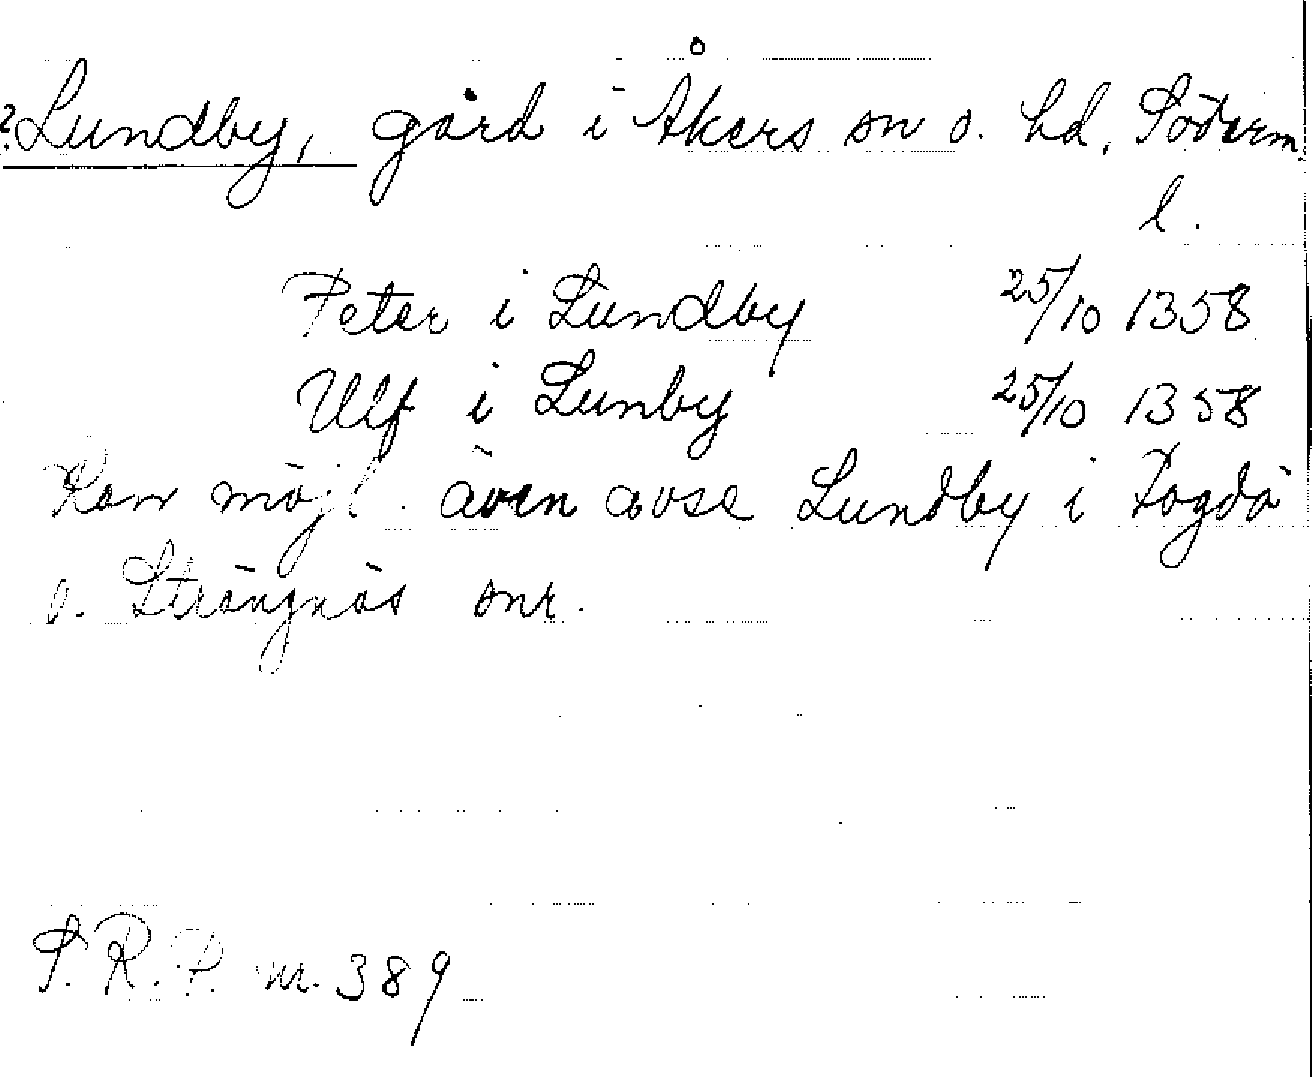 ?Lundby, gård i Åkers sn o. hd, Söderm.
l.
Peter i Lundby 25/10 1358
Ulf i Lunby 25/10 1358
Kan möjl. även avse Lundby i Fogdö
o. Strängnäs snr.
S.R.P. nr. 389